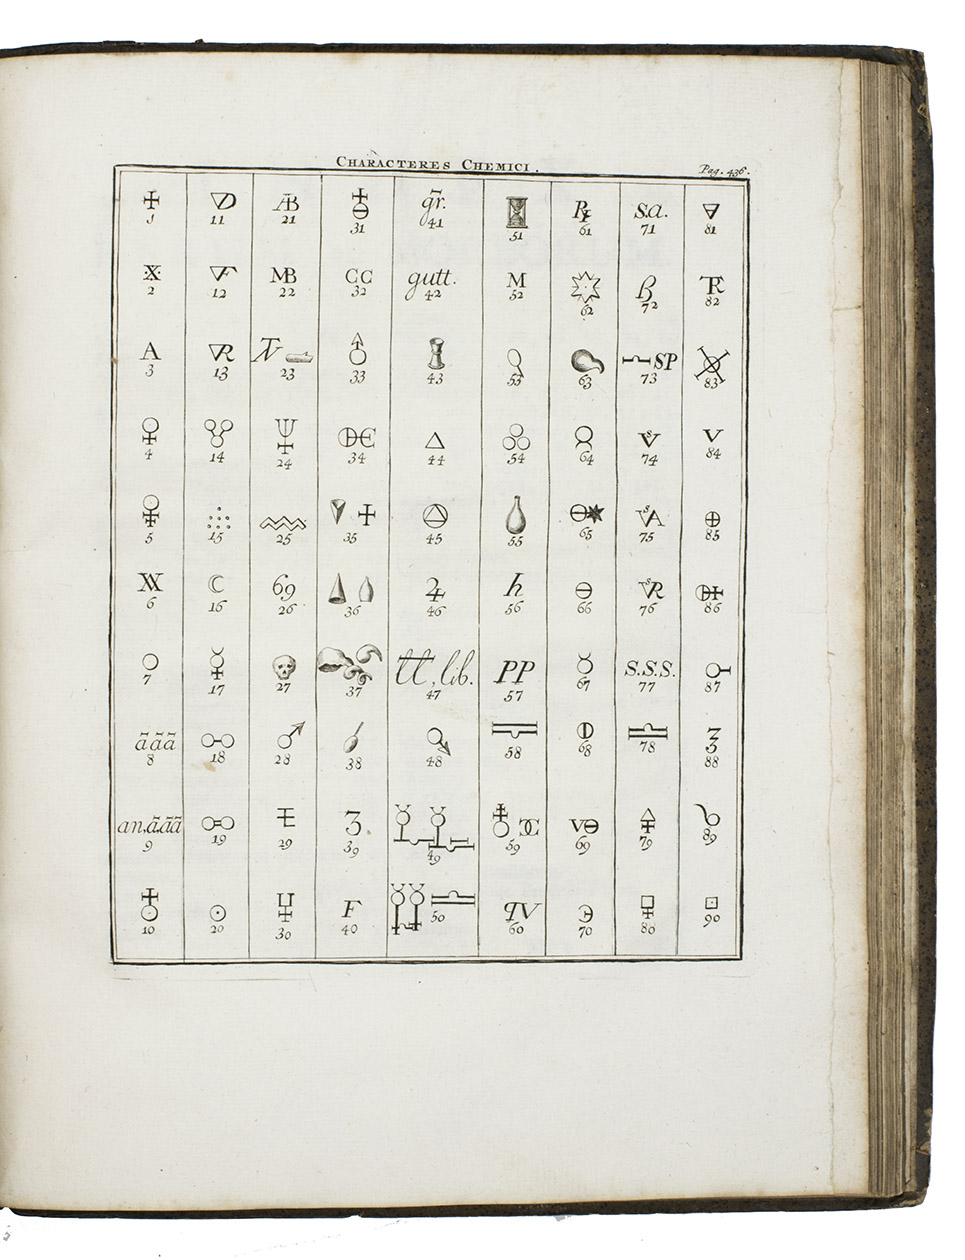 CHARACTERES CHEMICI.
Pag. 436.
1 11 21 31 gr̃. 41 51 ℞ 61 s.a. 71 81
2 12 MB 22 CC 32 gutt. 42 M 52 62 ß 72 82
A 3 13 23 33 43 53 63 SP 73 83
4 14 24 34 44 54 64 74 V 84
5 15 25 35 45 55 65 75 85
6 16 69 26 36 ♃ 46 h 56 66 76 86
7 17 27 37 lib. 47 PP 57 67 S.S.S. 77 87
ããã 8 18 28 38 48 58 68 78 88
an,ããã 9 19 29 3 39 49 59 69 79 89
10 20 30 F 40 50 60 70 80 90